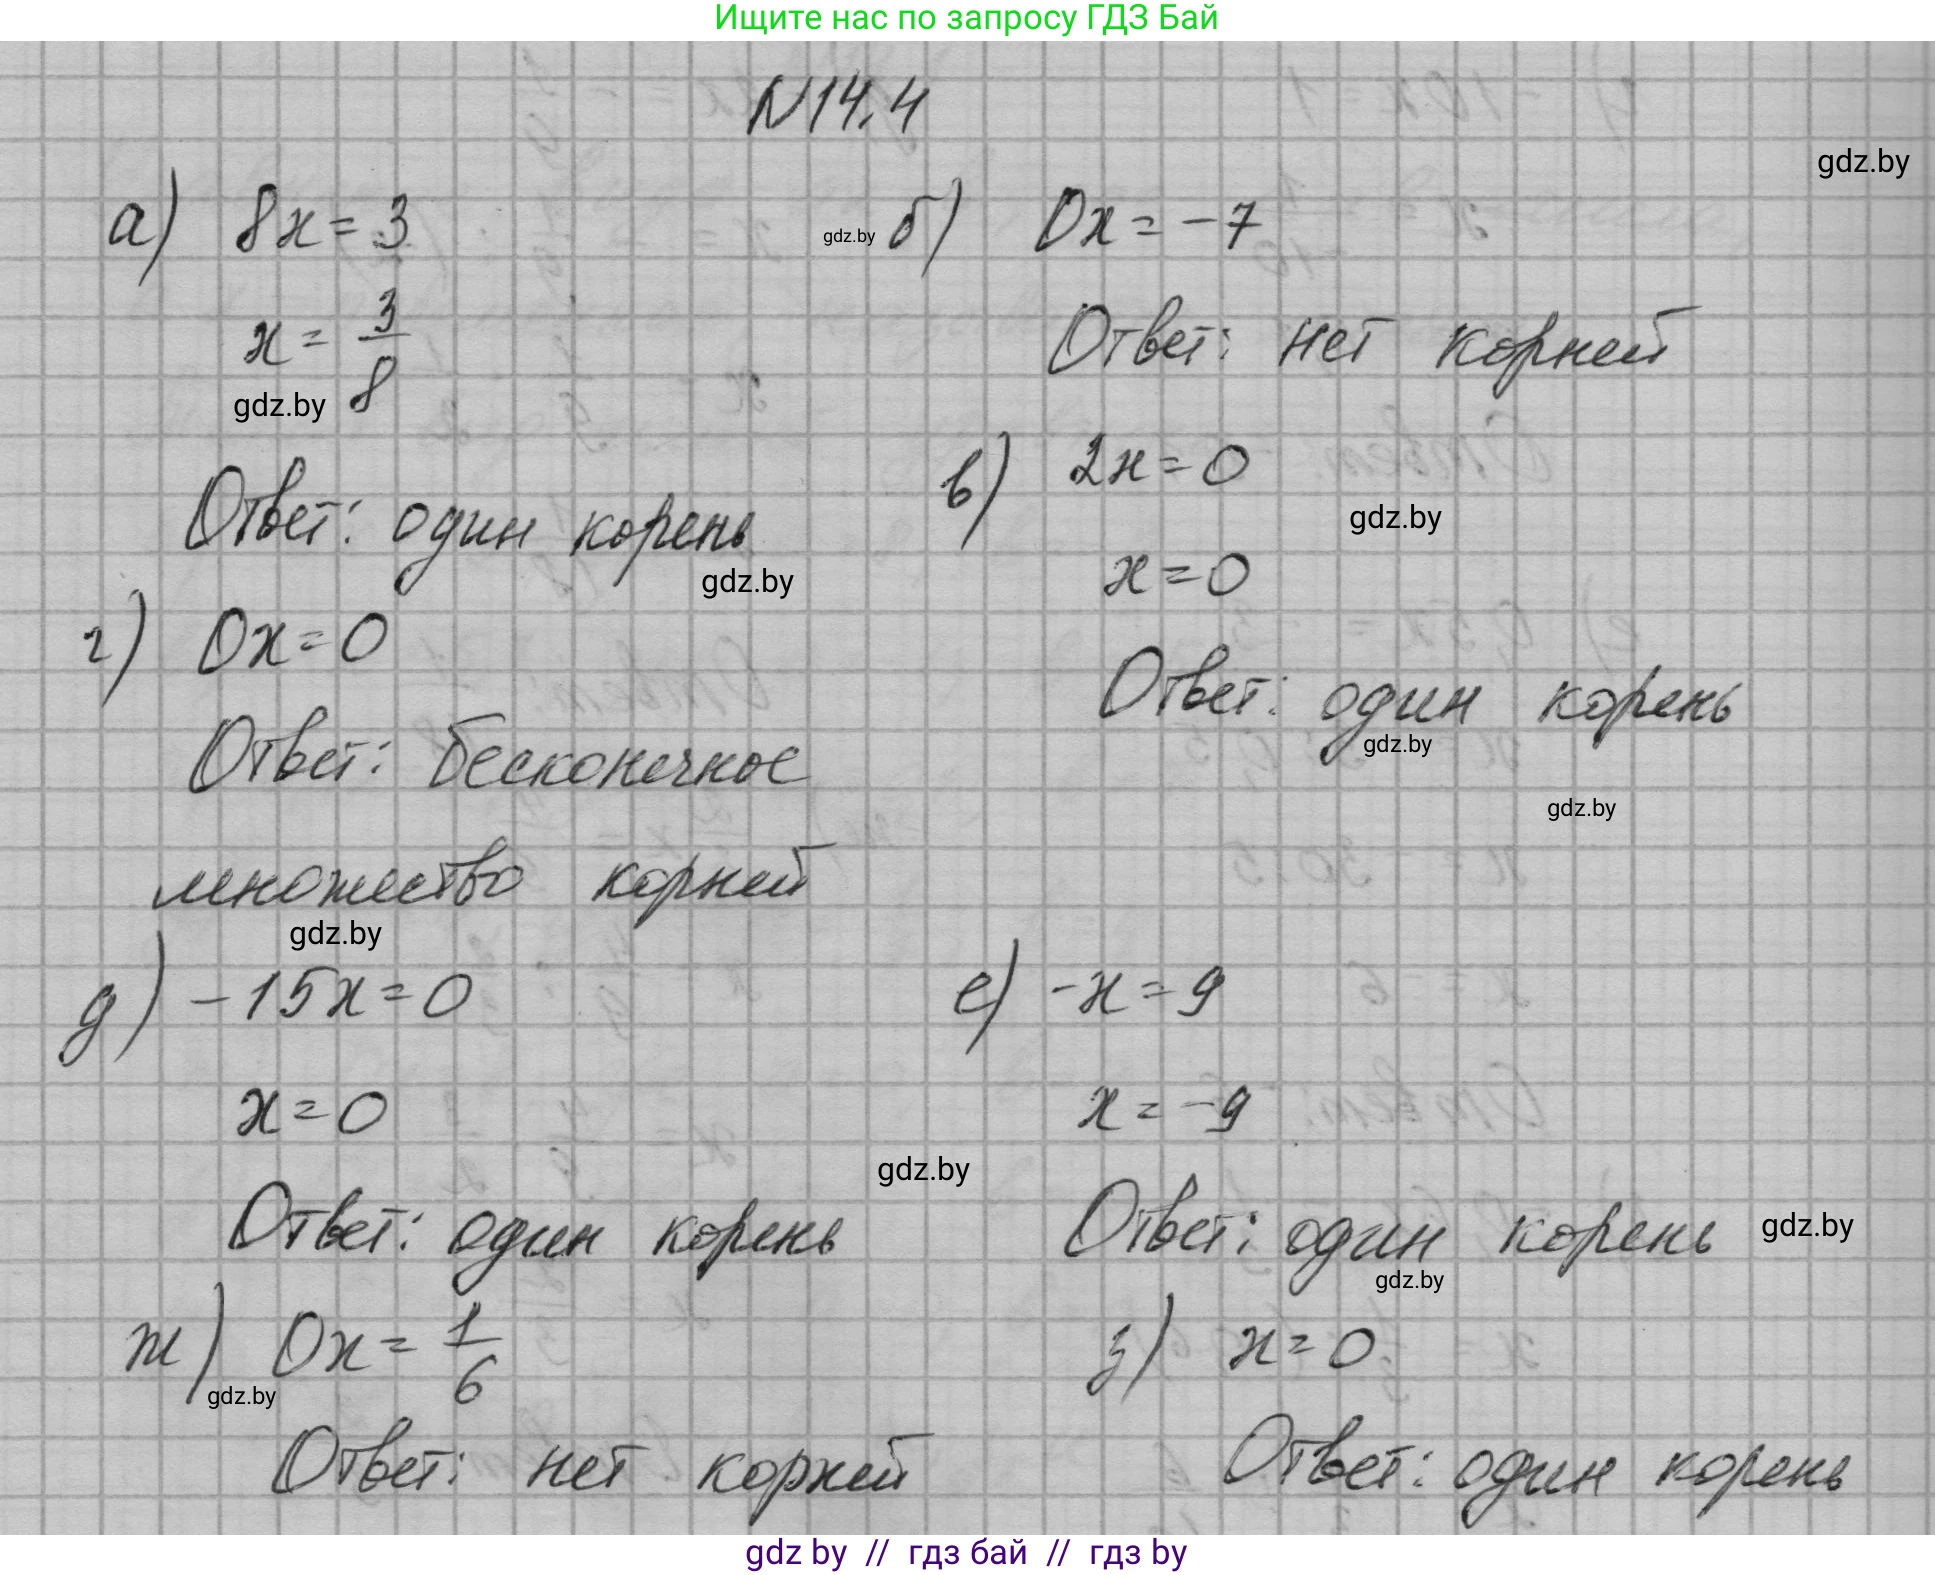 Ищите нас по запросу ГДЗ Бай
N14.4
gdz.by
а) 8x = 3
gdz.by
б) 0x = -7
x = 3/8
gdz.by
Ответ: нет корней
Ответ: один корень
gdz.by
в) 2x = 0
gdz.by
x = 0
Ответ: один корень
gdz.by
gdz.by
г) 0x = 0
Ответ: бесконечное
множество корней
gdz.by
д) -15x = 0
x = 0
Ответ: один корень
gdz.by
е) -x = 9
x = -9
Ответ: один корень
gdz.by
gdz.by
ж) 0x = 1/6
gdz.by
Ответ: нет корней
з) x = 0
Ответ: один корень
gdz by // гдз бай // гдз by